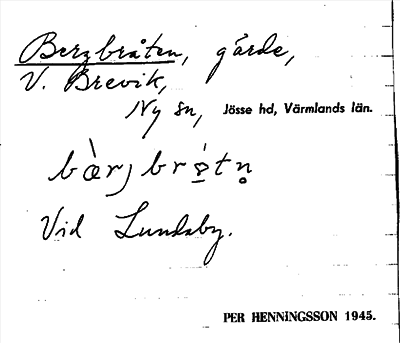 Bergbråten, gärde,
V. Brevik,
Ny sn, Jösse hd, Värmlands län.
Vid Lundsby.
PER HENNINGSSON 1945.